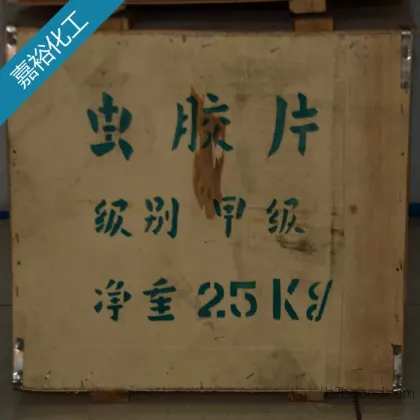 嘉裕化工
虫胶片
级别 甲级
净重 25Kg